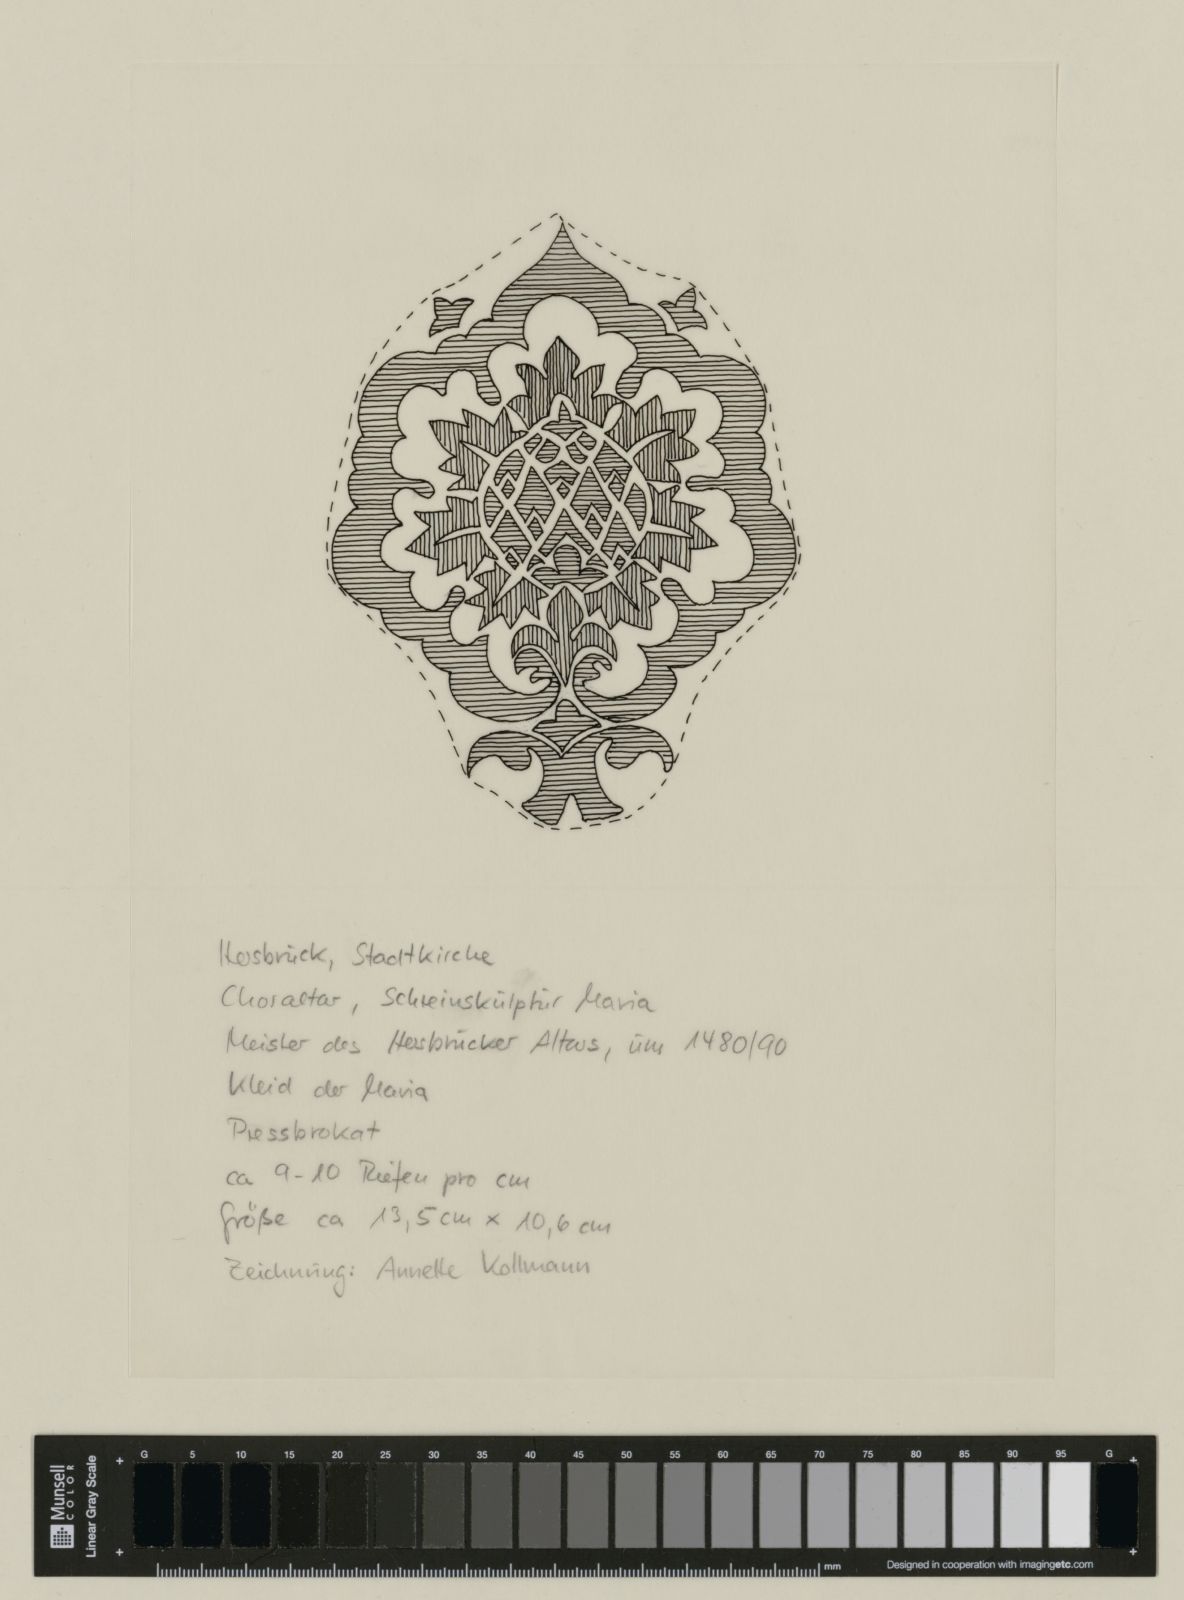 Hersbrück, Stadtkirche
Choraltar, Schreinskulptur Maria
Meister des Hersbrücker Altars, um 1480/90
Kleid der Maria
Pressbrokat
ca 9-10 Riefen pro cm
Größe ca 13,5 cm x 10,6 cm
Zeichnung: Annette Kollmann
Munsell
COLOR
Linear Gray Scale
G 5 10 15 20 25 30 35 40 45 50 55 60 65 70 75 80 85 90 95 G
mm
Designed in cooperation with imagingetc.com